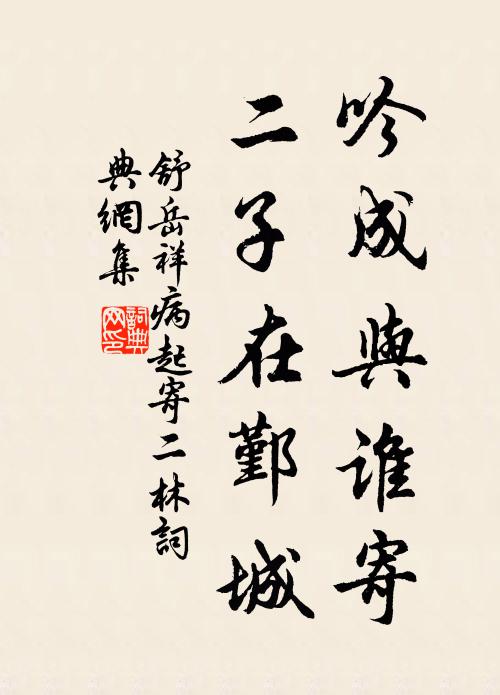 吟成與誰寄
二子在鄞城
舒岳祥病起寄二林詞
典網集
詞典网印